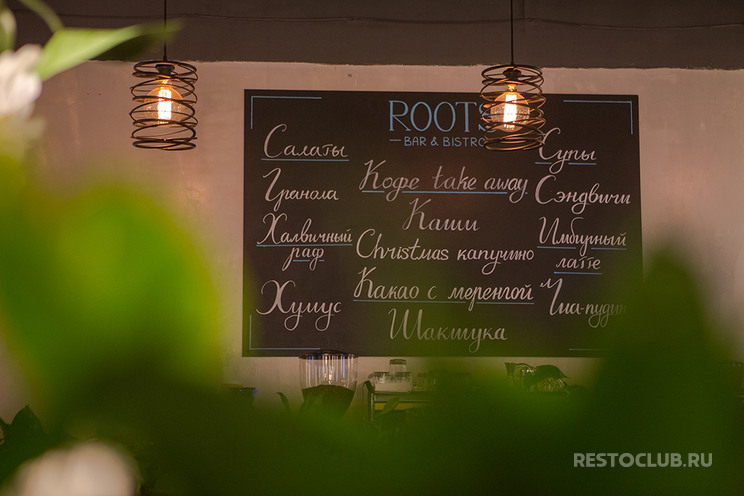 ROOTS
BAR & BISTRO
Салаты
Гранола
Халвичный
раф
Хумус
Кофе take away
Каши
Christmas капучино
Какао с меренгой
Шакшука
Супы
Сэндвичи
Имбирный
латте
Чиа-пудинг
RESTOCLUB.RU